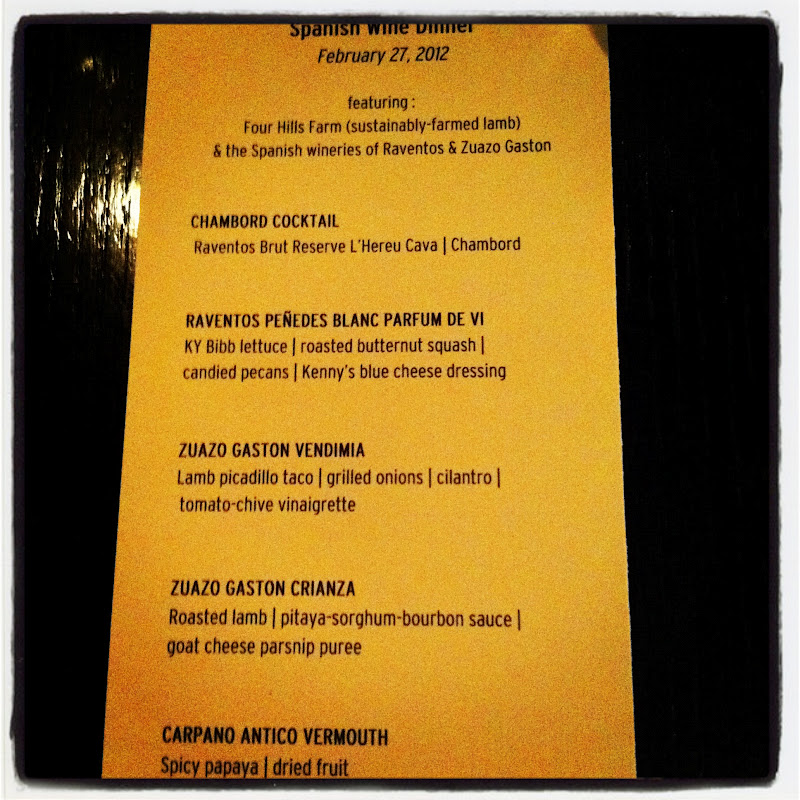 Spanish Wine Dinner
February 27, 2012
featuring :
Four Hills Farm (sustainably-farmed lamb)
& the Spanish wineries of Raventos & Zuazo Gaston
CHAMBORD COCKTAIL
Raventos Brut Reserve L'Hereu Cava | Chambord
RAVENTOS PEÑEDES BLANC PARFUM DE VI
KY Bibb lettuce | roasted butternut squash |
candied pecans | Kenny's blue cheese dressing
ZUAZO GASTON VENDIMIA
Lamb picadillo taco | grilled onions | cilantro |
tomato-chive vinaigrette
ZUAZO GASTON CRIANZA
Roasted lamb | pitaya-sorghum-bourbon sauce |
goat cheese parsnip puree
CARPANO ANTICO VERMOUTH
Spicy papaya | dried fruit